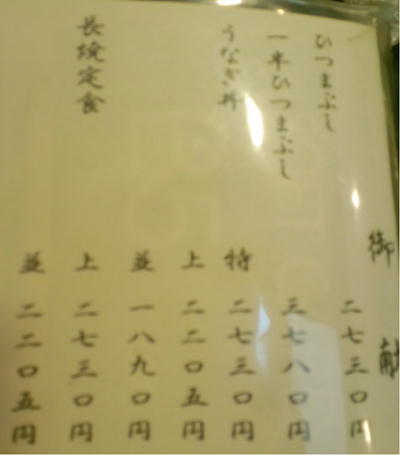 御献
ひつまぶし 二七三〇円
一半ひつまぶし 三七八〇円
うなぎ丼 特 二七三〇円
上 二二〇五円
並 一八九〇円
長焼定食 上 二七三〇円
並 二二〇五円